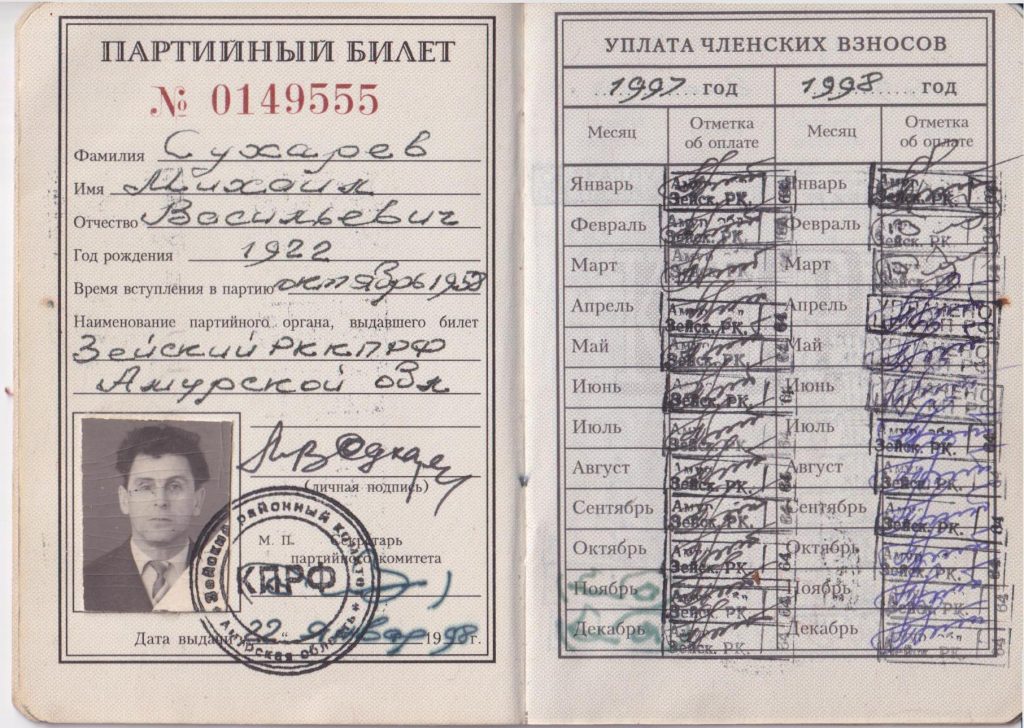 ПАРТИЙНЫЙ БИЛЕТ
№ 0149555
Фамилия Сухарев
Имя Михаил
Отчество Васильевич
Год рождения 1922
Время вступления в партию октябрь 1958
Наименование партийного органа, выдавшего билет
Зейский РК КПРФ
Амурской обл
(личная подпись)
М. П. Секретарь
партийного комитета
Зейский районный комитет * Амурская область *
КПРФ
Дата выдачи „22“ январь 1998 г.
УПЛАТА ЧЛЕНСКИХ ВЗНОСОВ
1997 год 1998 год
Месяц Отметка об оплате Месяц Отметка об оплате
Январь Январь
Февраль Зейск. РК. Февраль
Март Март
Апрель Зейск. РК. Апрель
Май Зейск. РК. Май
Июнь Зейск. РК. Июнь
Июль Зейск. РК. Июль
Август Август
Сентябрь Зейск. РК. Сентябрь
Октябрь Зейск. РК. Октябрь
Ноябрь Ноябрь
Декабрь Зейск. РК. Декабрь